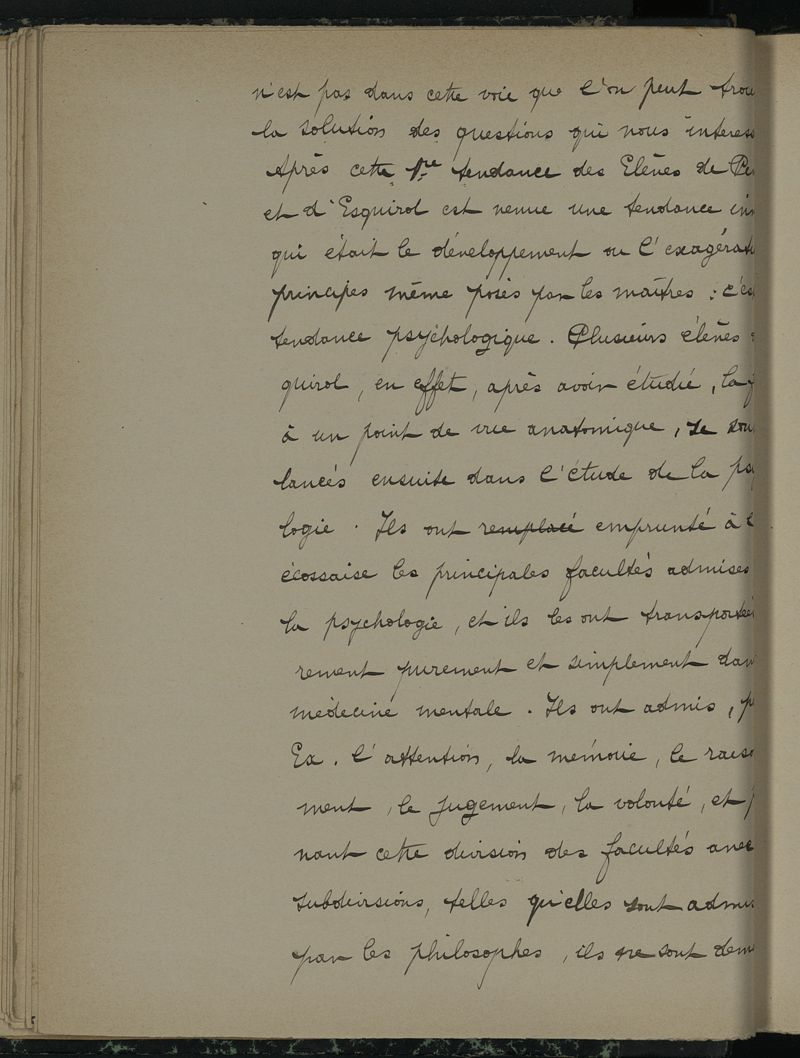 n'est pas dans cette voie que l'on peut trou
la solution des questions qui nous interess
Après cette 1re tendance des Elèves de
et d'Esquirol est venue une tendance
qui était le développement ou l'exagérat
principes même posés par les maîtres : c'es
tendance psychologique. Plusieurs élèves
quirol, en effet, après avoir étudié, la
à un point de vue anatomique, se son
lancés ensuite dans l'étude de la psy
logie. Ils ont remplacé emprunté à
écossaise les principales facultés admises
la psychologie, et ils les ont transportée
rement purement et simplement dan
médecine mentale. Ils ont admis, p
Ex. l'attention, la mémoire, le raiso
ment, le jugement, la volonté, et p
nant cette division des facultés avec
subdivisions, telles qu'elles sont admis
par les philosophes, ils se sont dem